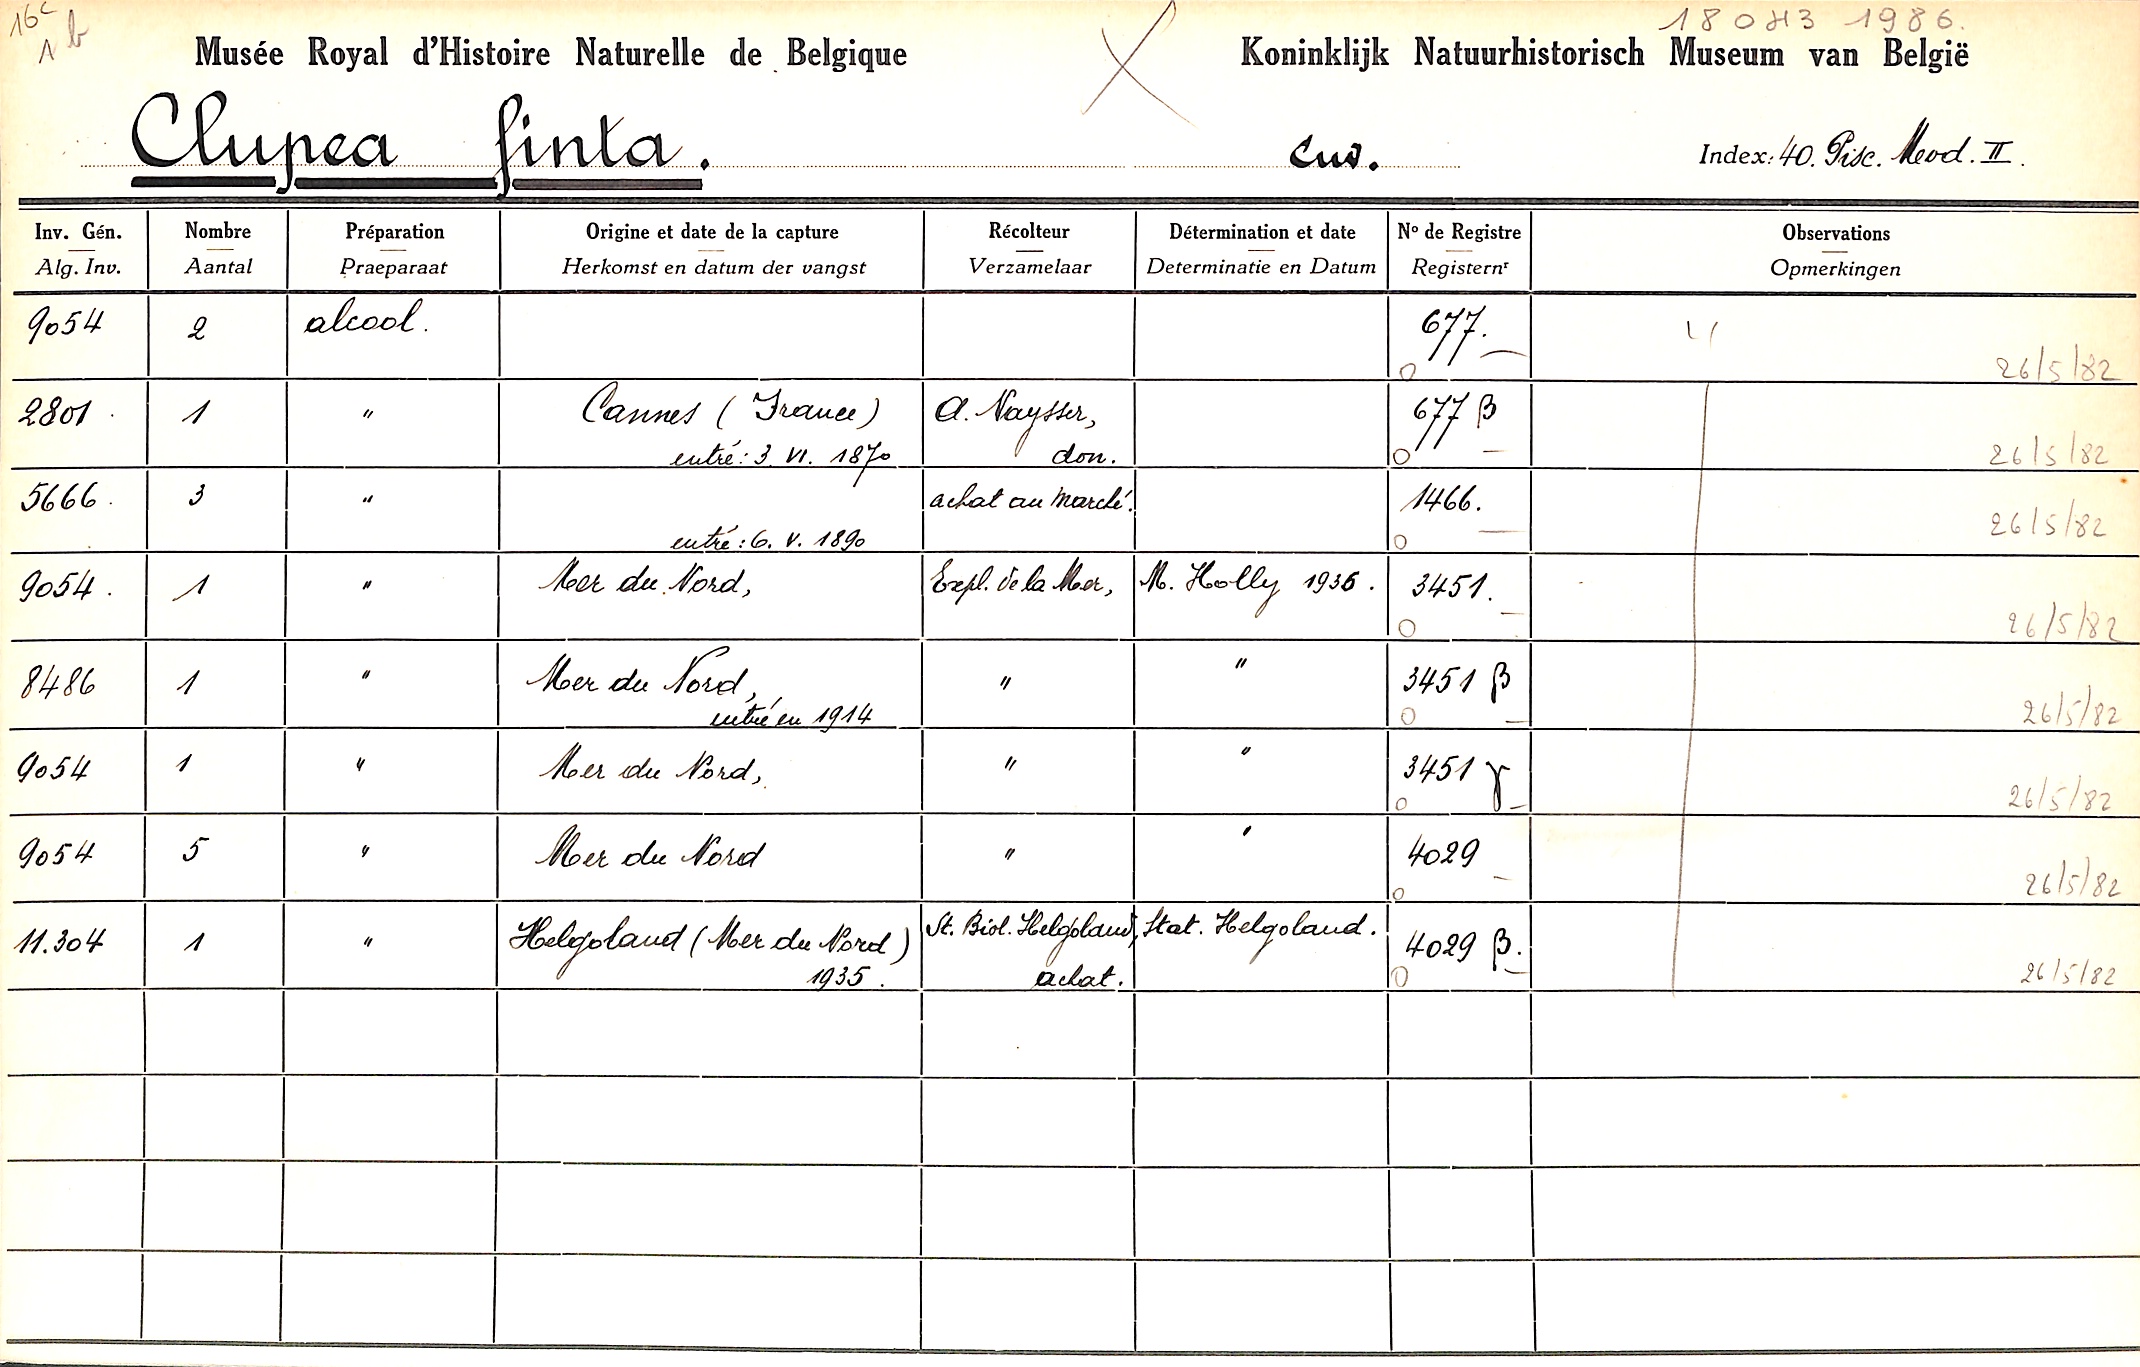 16c
1 b
18 043 1986.
Musée Royal d'Histoire Naturelle de Belgique
Koninklijk Natuurhistorisch Museum van België
Clupea finta. Cuv. Index: 40. Pisc. Mevd. II.
Inv. Gén. Nombre Préparation Origine et date de la capture Récolteur Détermination et date No de Registre Observations
Alg. Inv. Aantal Praeparaat Herkomst en datum der vangst Verzamelaar Determinatie en Datum Registernr Opmerkingen
9054 2 alcool. 677.
O 26/5/82
2801 1 " Cannes (France) A. Naysser, 677 β
entré: 3. VI. 1870 don. O 26/5/82
5666. 3 " achat au marché. 1466.
entré: 6. V. 1890 O 26/5/82
9054. 1 " Mer du Nord, Expl. de la Mer, M. Holly 1936. 3451.
O 26/5/82
8486 1 " Mer du Nord, " " 3451 β
entré en 1914 O 26/5/82
9054 1 " Mer du Nord, " " 3451 γ
O 26/5/82
9054 5 " Mer du Nord " " 4029
O 26/5/82
11.304 1 " Helgoland (Mer du Nord) St. Biol. Helgoland, Stat. Helgoland. 4029 β.
1935. achat. O 26/5/82